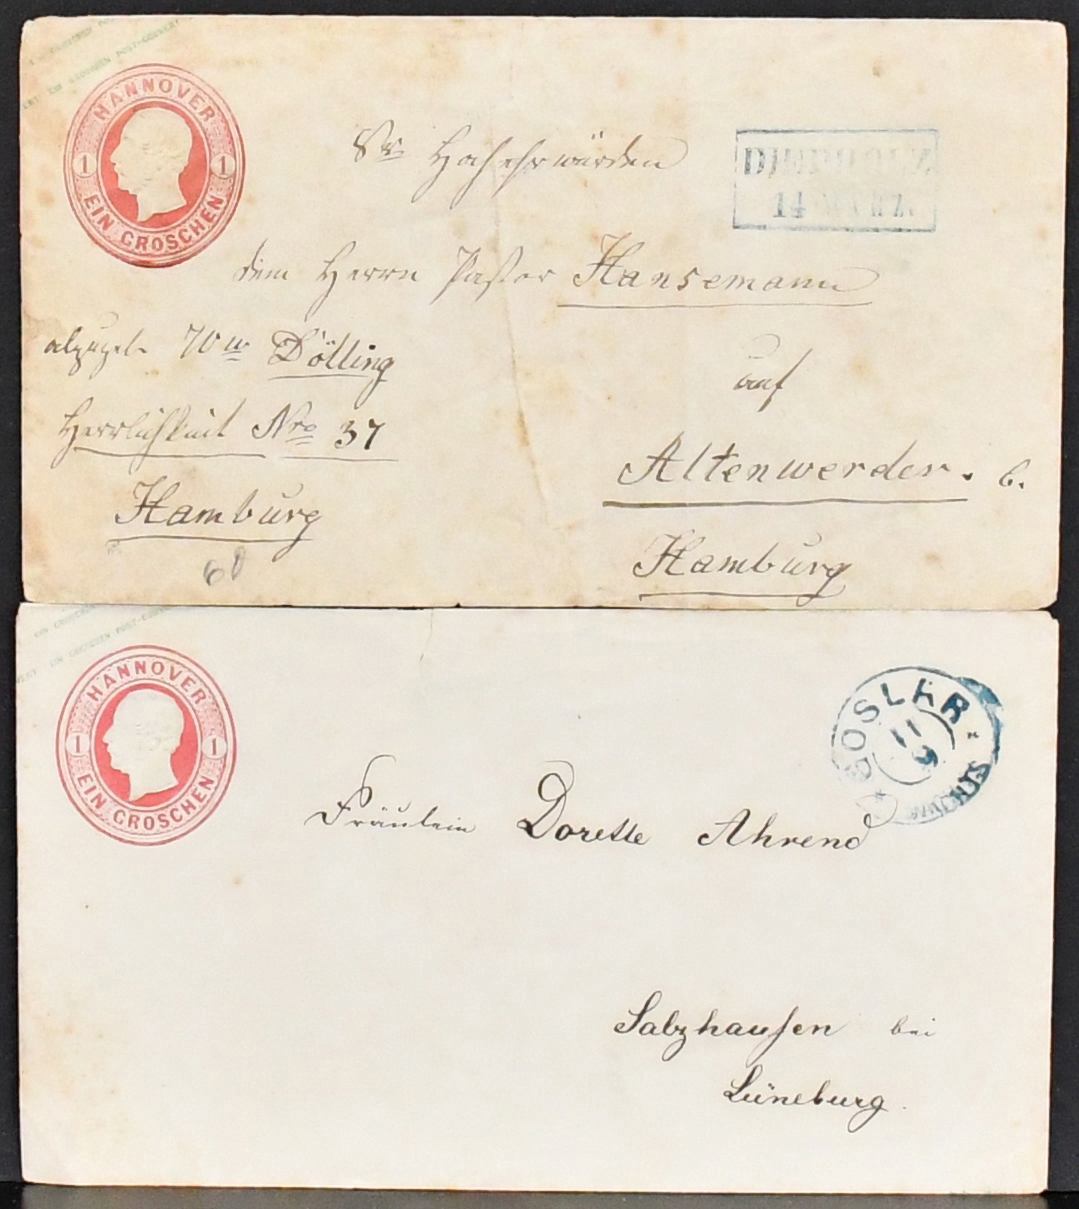 EIN GROSCHEN POST-COUVERT
HANNOVER
1 1
EIN GROSCHEN
14 MÄRZ.
Sr Hochehrwürden
dem Herrn Pastor Hansemann
abzugeb. Dölling
Herrlichkeit Nro 37
Hamburg
60
auf
Altenwerder. b.
Hamburg
EIN GROSCHEN POST-COUVERT
HANNOVER
1 1
EIN GROSCHEN
GOSLAR
11
9
Fräulein Dorette Ahrend
Salzhausen bei
Lüneburg.